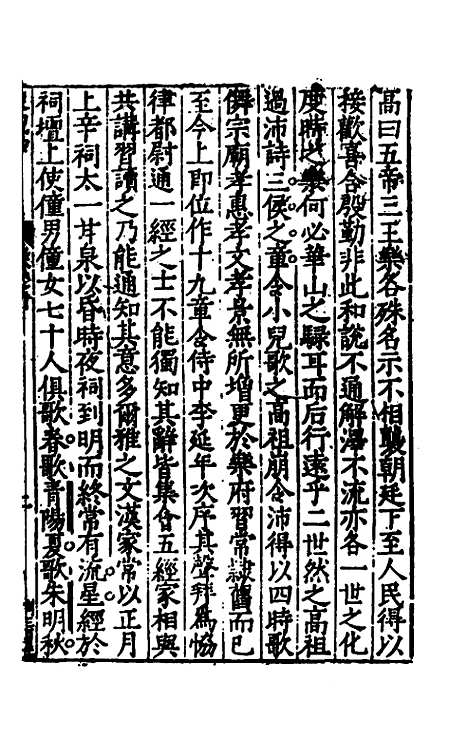 髙曰五帝三王樂各殊名示不相襲朝廷下至人民得以
接歡喜合殷勤非此和說不通解澤不流亦各一世之化
度時之樂何必華山之騄耳而后行逺乎二世然之高祖
過沛詩三侯之章令小兒歌之高祖崩令沛得以四時歌
儛宗廟孝惠孝文孝景無所增更於樂府習常隸舊而已
至今上即位作十九章令侍中李延年次序其聲拜爲恊
律都尉通一經之士不能獨知其辭皆集會五經家相與
共講習讀之乃能通知其意多爾雅之文漢家常以正月
上辛祠太一甘泉以昏時夜祠到明而終常有流星經於
祠壇上使僮男僮女七十人俱歌春歌青陽夏歌朱明秋